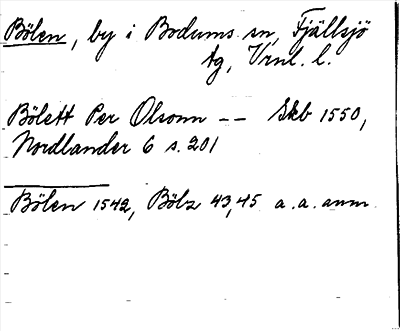 Bölen, by i Bodums sn, Fjällsjö
tg, Vrnl. l.
Bölett Per Olsonn -- Skb 1550,
Nordlander 6 s. 201
Bölen 1542, Bölz 43, 45 a. a. anm.